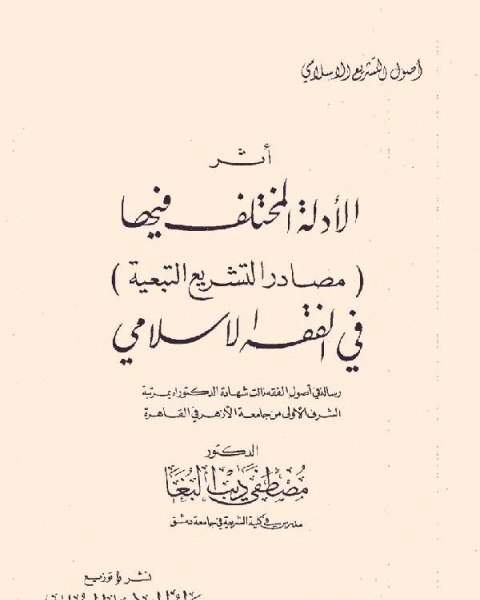 أصول التشريع الاسلامي
أثر
الأدلة المختلف فيها
( مصادر التشريع التبعية )
في الفقه الاسلامي
رسالة في أصول الفقه نالت شهادة الدكتوراه بمرتبة
الشرف الأولى من جامعة الأزهر في القاهرة
الدكتور
مصطفى ديب البغا
مدرس في كلية الشريعة في جامعة دمشق
نشر وتوزيع